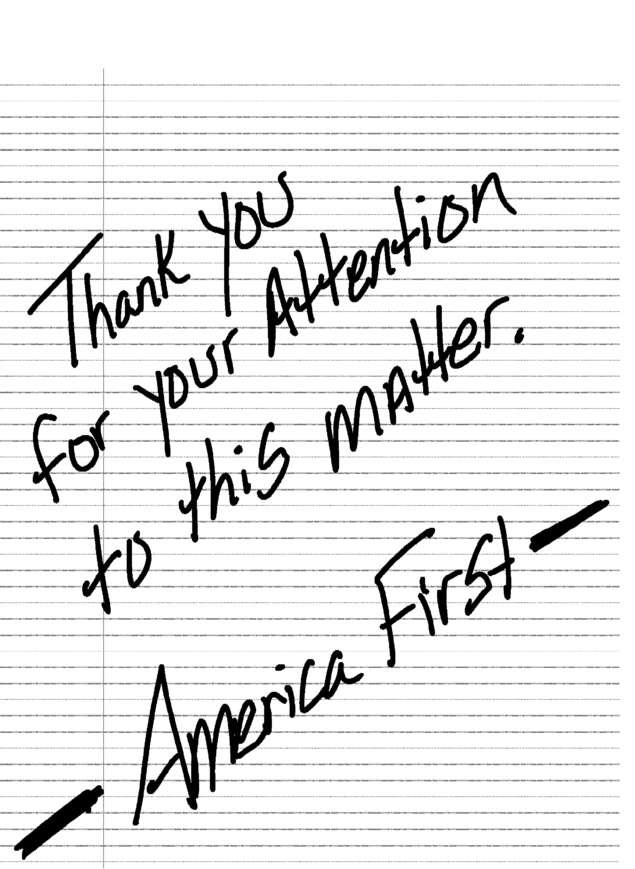 Thank you
for your Attention
to this matter.
- America First -